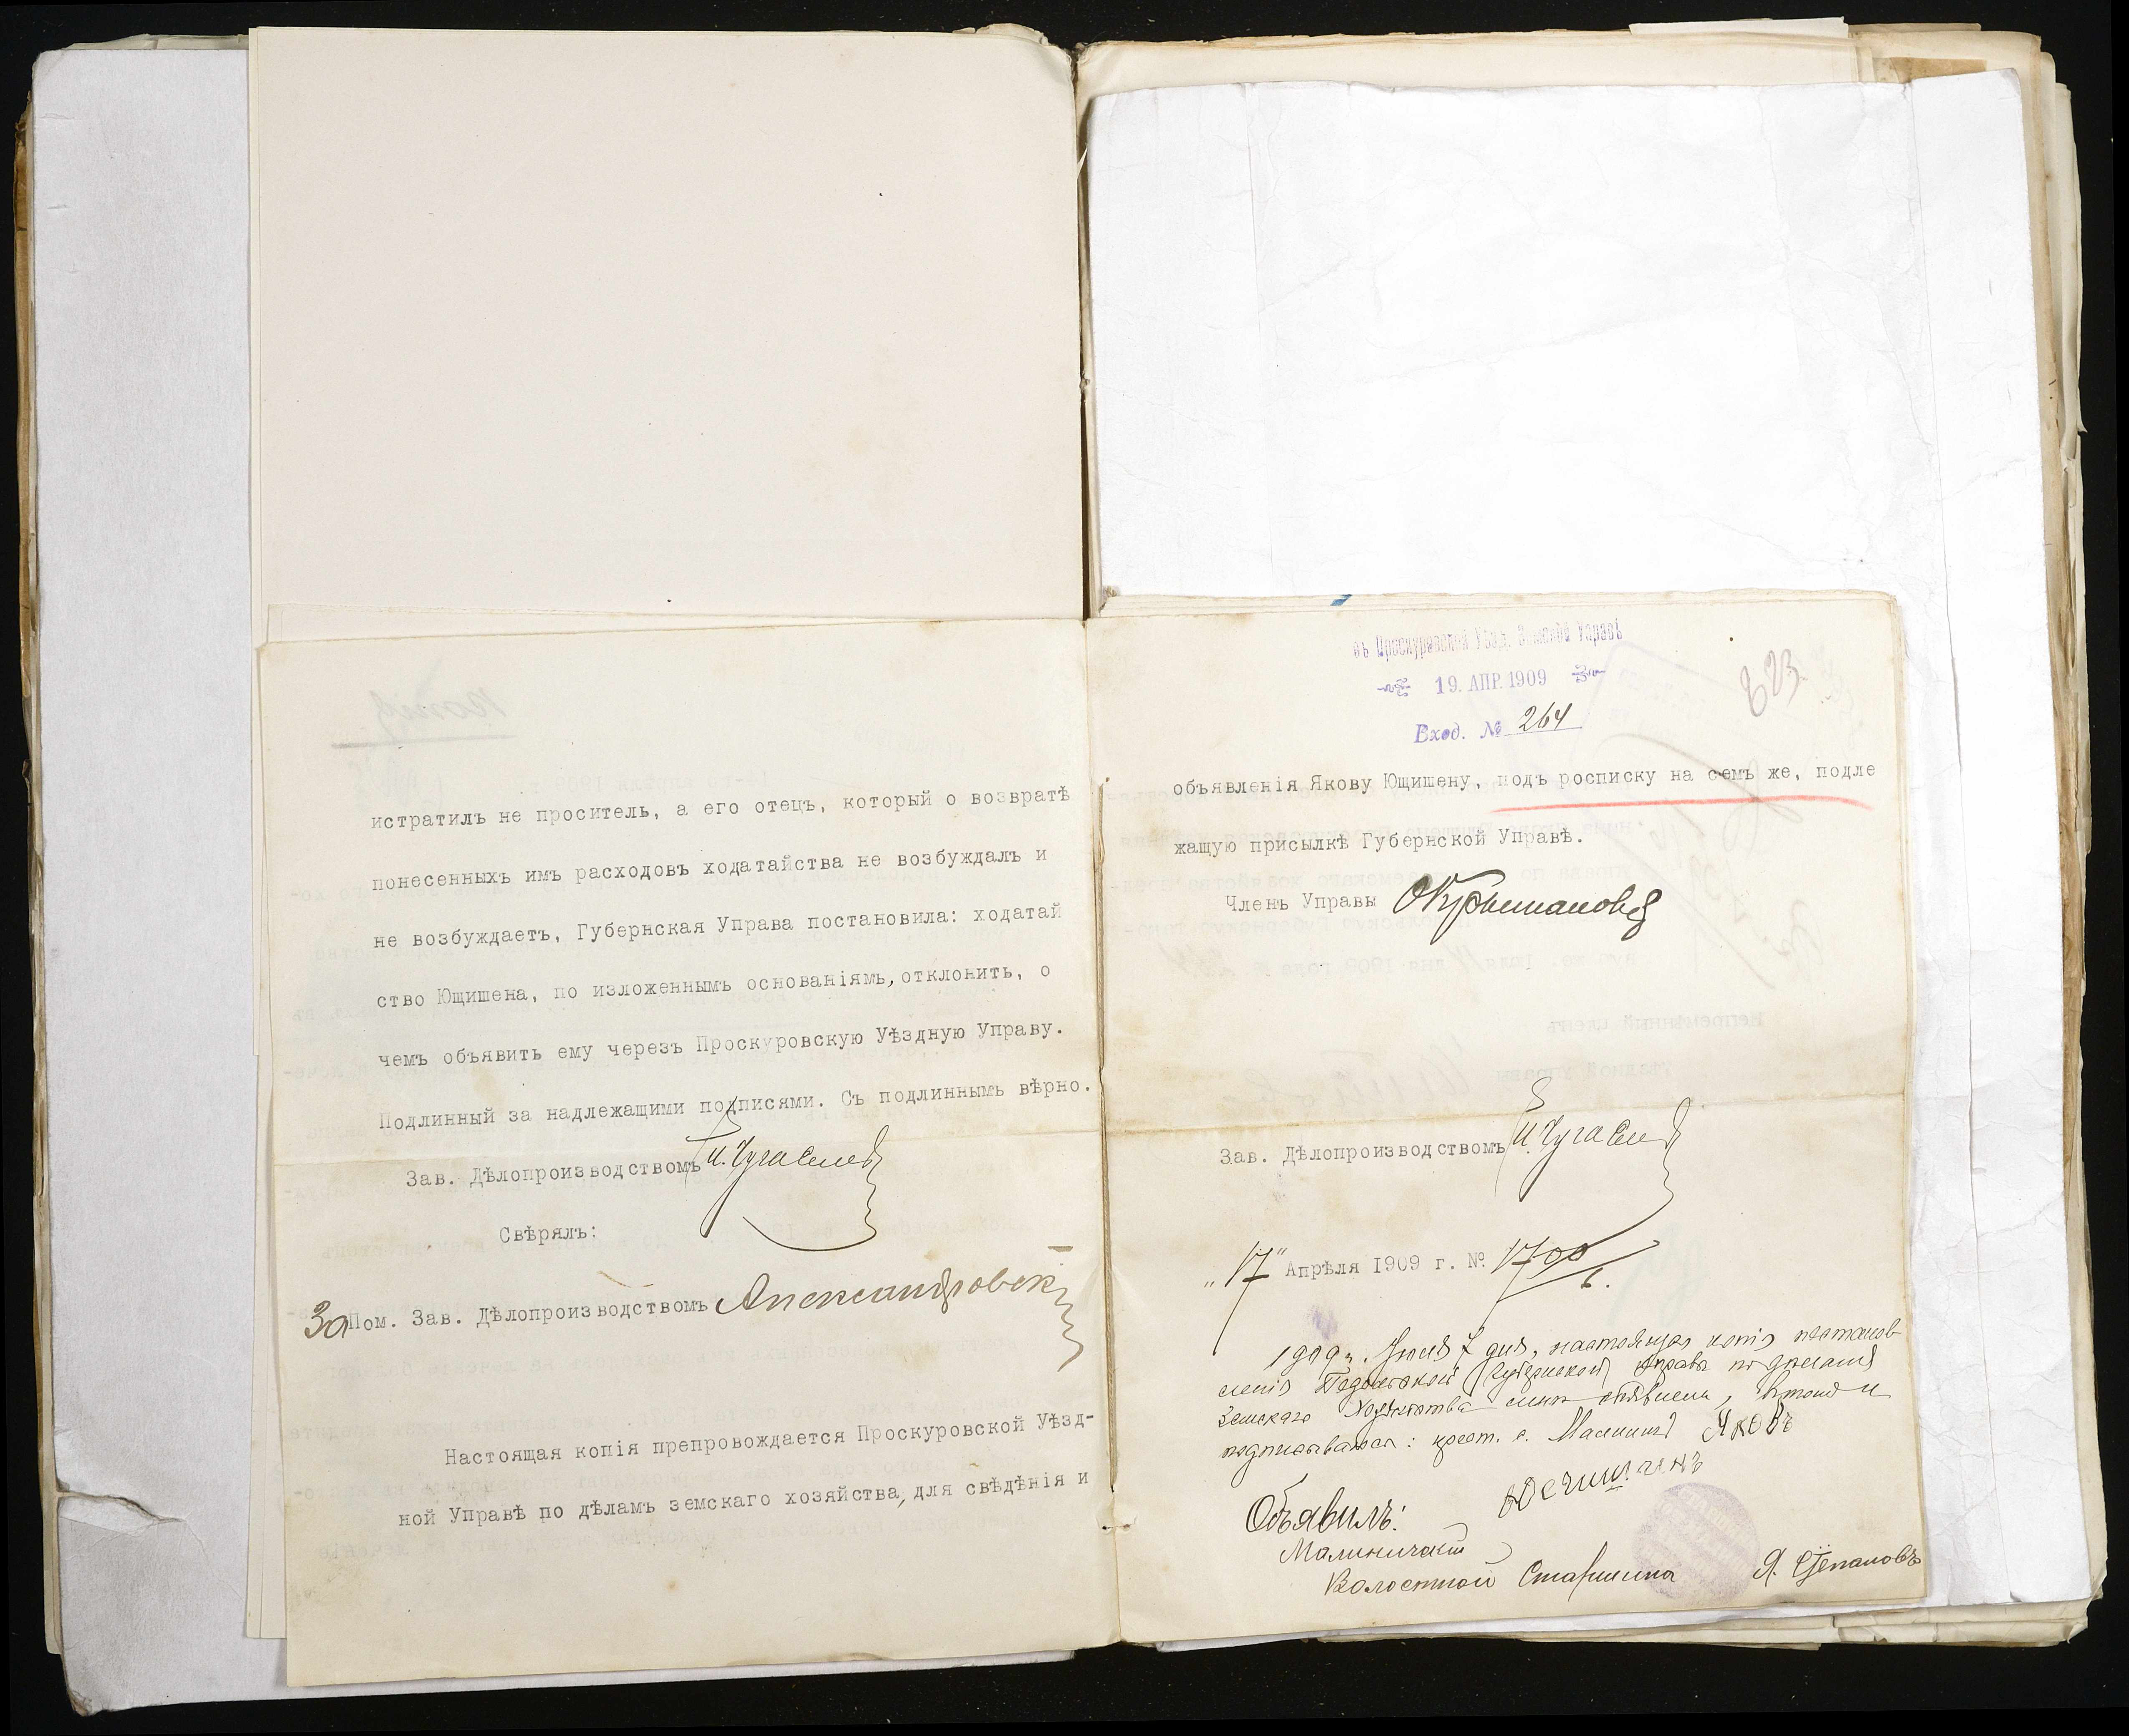 истратилъ не проситель, а его отецъ, который о возвратѣ
понесенныхъ имъ расходовъ ходатайства не возбуждалъ и
не возбуждаетъ, Губернская Управа постановила: ходатай
ство Ющишена, по изложеннымъ основаніямъ, отклонить, о
чемъ объявить ему черезъ Проскуровскую Уѣздную Управу.
Подлинный за надлежащими подписями. Съ подлиннымъ вѣрно.
Зав. Дѣлопроизводствомъ
Свѣрялъ:
За Пом. Зав. Дѣлопроизводствомъ Александровск
Настоящая копія препровождается Проскуровской Уѣзд-
ной Управѣ по дѣламъ земскаго хозяйства, для свѣдѣнія и
въ Проскуровской Уѣзд. Земской Управѣ
19. АПР. 1909
Вход. № 264
объявленія Якову Ющишену, подъ росписку на семъ же, подле
жащую присылкѣ Губернской Управѣ.
Членъ Управы
Зав. Дѣлопроизводствомъ
"17" Апрѣля 1909 г. № 1700
1909 г. Іюня 7 дня, настоящая копія постанов-
ленія Подольской Губернской Управы по дѣламъ
Земскаго Хозяйства мнѣ объявлена, въ томъ и
подписываюсь: крест. с. Яковъ
Ющишинъ
Объявилъ:
Малиничскій
Волостной Старшина Я. Степановъ